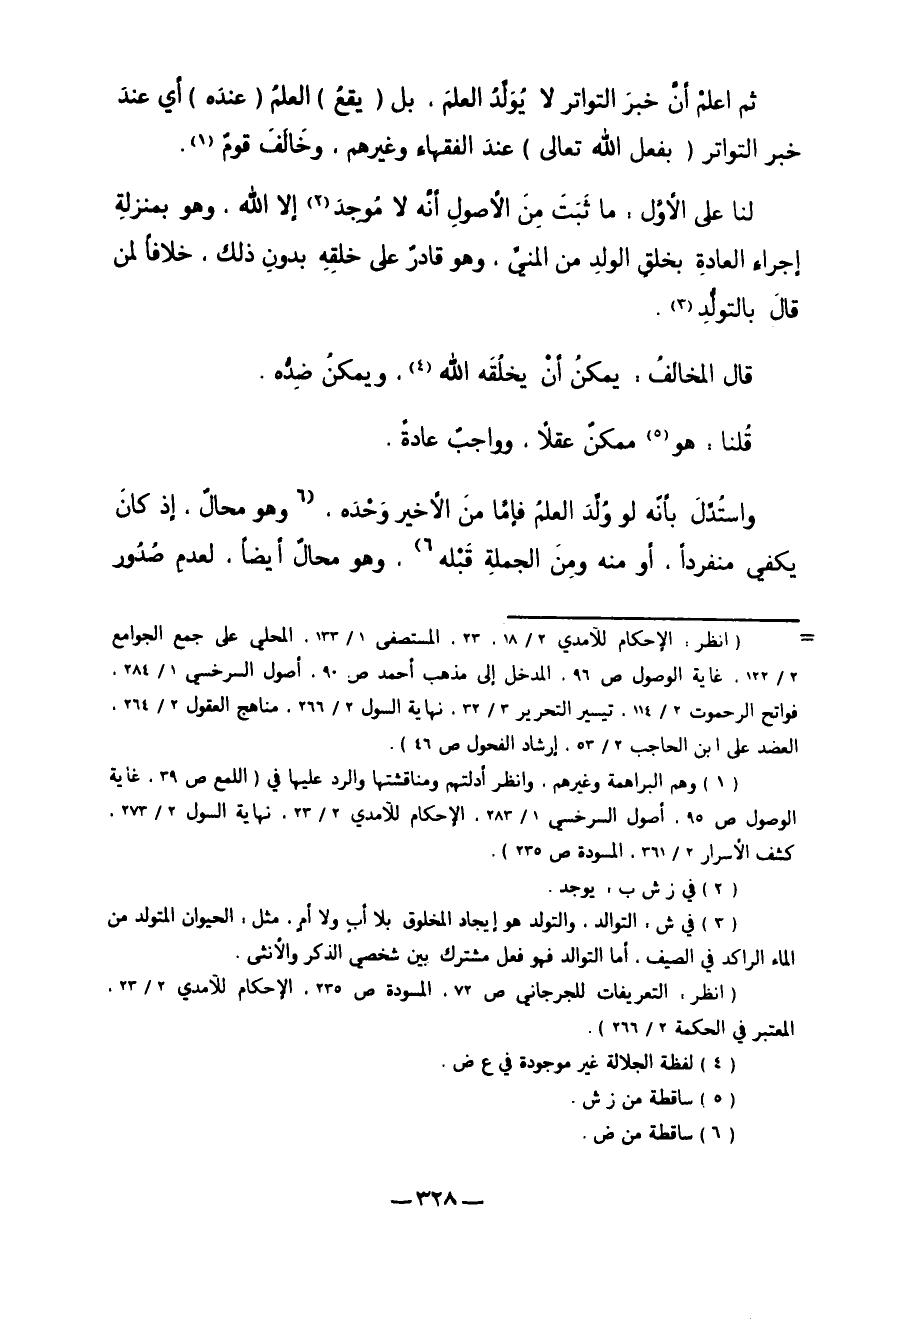 ثم اعلمْ أنَّ خبرَ التواتر لا يُوَلِّدُ العلمَ ، بل ( يقعُ ) العلمُ ( عندَه ) أي عندَ
خبر التواتر ( بفعل الله تعالى ) عندَ الفقهاء وغيرهم ، وخَالَفَ قومٌ (١) .
لنا على الأوّل : ما ثَبَتَ مِنَ الأصولِ أنَّه لا مُوجِدَ (٢) إلا الله ، وهو بمنزلةِ
إجراء العادةِ بخلقِ الولدِ من المنيِّ ، وهو قادرٌ على خلقِهِ بدونِ ذلك ، خلافاً لمن
قالَ بالتولُّدِ (٣) .
قال المخالفُ : يمكنُ أنْ يخلُقَه الله (٤) ، ويمكنُ ضِدُّه .
قُلنا : هو (٥) ممكنٌ عقلًا ، وواجبٌ عادةً .
واستُدِلَّ بأنَّه لو وُلِّدَ العلمُ فإمَّا منَ الأخيرِ وَحْدَه ، (٦ وهو محالٌ ، إذ كانَ
يكفي منفرداً ، أو منه ومِنَ الجملةِ قَبْله ٦) ، وهو محالٌ أيضاً ، لعدمِ صُدُورِ
= ( انظر : الإحكام للآمدي ٢ / ١٨ ، ٢٣ ، المستصفى ١ / ١٣٣ ، المحلي على جمع الجوامع
٢ / ١٢٢ ، غاية الوصول ص ٩٦ ، المدخل إلى مذهب أحمد ص ٩٠ ، أصول السرخسي ١ / ٢٨٤ ،
فواتح الرحموت ٢ / ١١٤ ، تيسير التحرير ٣ / ٣٢ ، نهاية السول ٢ / ٢٦٦ ، مناهج العقول ٢ / ٢٦٤ ،
العضد على ابن الحاجب ٢ / ٥٣ ، إرشاد الفحول ص ٤٦ ) .
( ١ ) وهم البراهمة وغيرهم ، وانظر أدلتهم ومناقشتها والرد عليها في ( اللمع ص ٣٩ ، غاية
الوصول ص ٩٥ ، أصول السرخسي ١ / ٢٨٣ ، الإحكام للآمدي ٢ / ٢٣ ، نهاية السول ٢ / ٢٧٣ ،
كشف الأسرار ٢ / ٣٦١ ، المسودة ص ٢٣٥ ) .
( ٢ ) في ز ش ب : يوجد .
( ٣ ) في ش : التوالد ، والتولد هو إيجاد المخلوق بلا أب ولا أم ، مثل : الحيوان المتولد من
الماء الراكد في الصيف ، أما التوالد فهو فعل مشترك بين شخصي الذكر والأنثى .
( انظر : التعريفات للجرجاني ص ٧٢ ، المسودة ص ٢٣٥ ، الإحكام للآمدي ٢ / ٢٣ ،
المعتبر في الحكمة ٢ / ٢٦٦ ) .
( ٤ ) لفظة الجلالة غير موجودة في ع ض .
( ٥ ) ساقطة من ز ش .
( ٦ ) ساقطة من ض .
— ٣٢٨ —